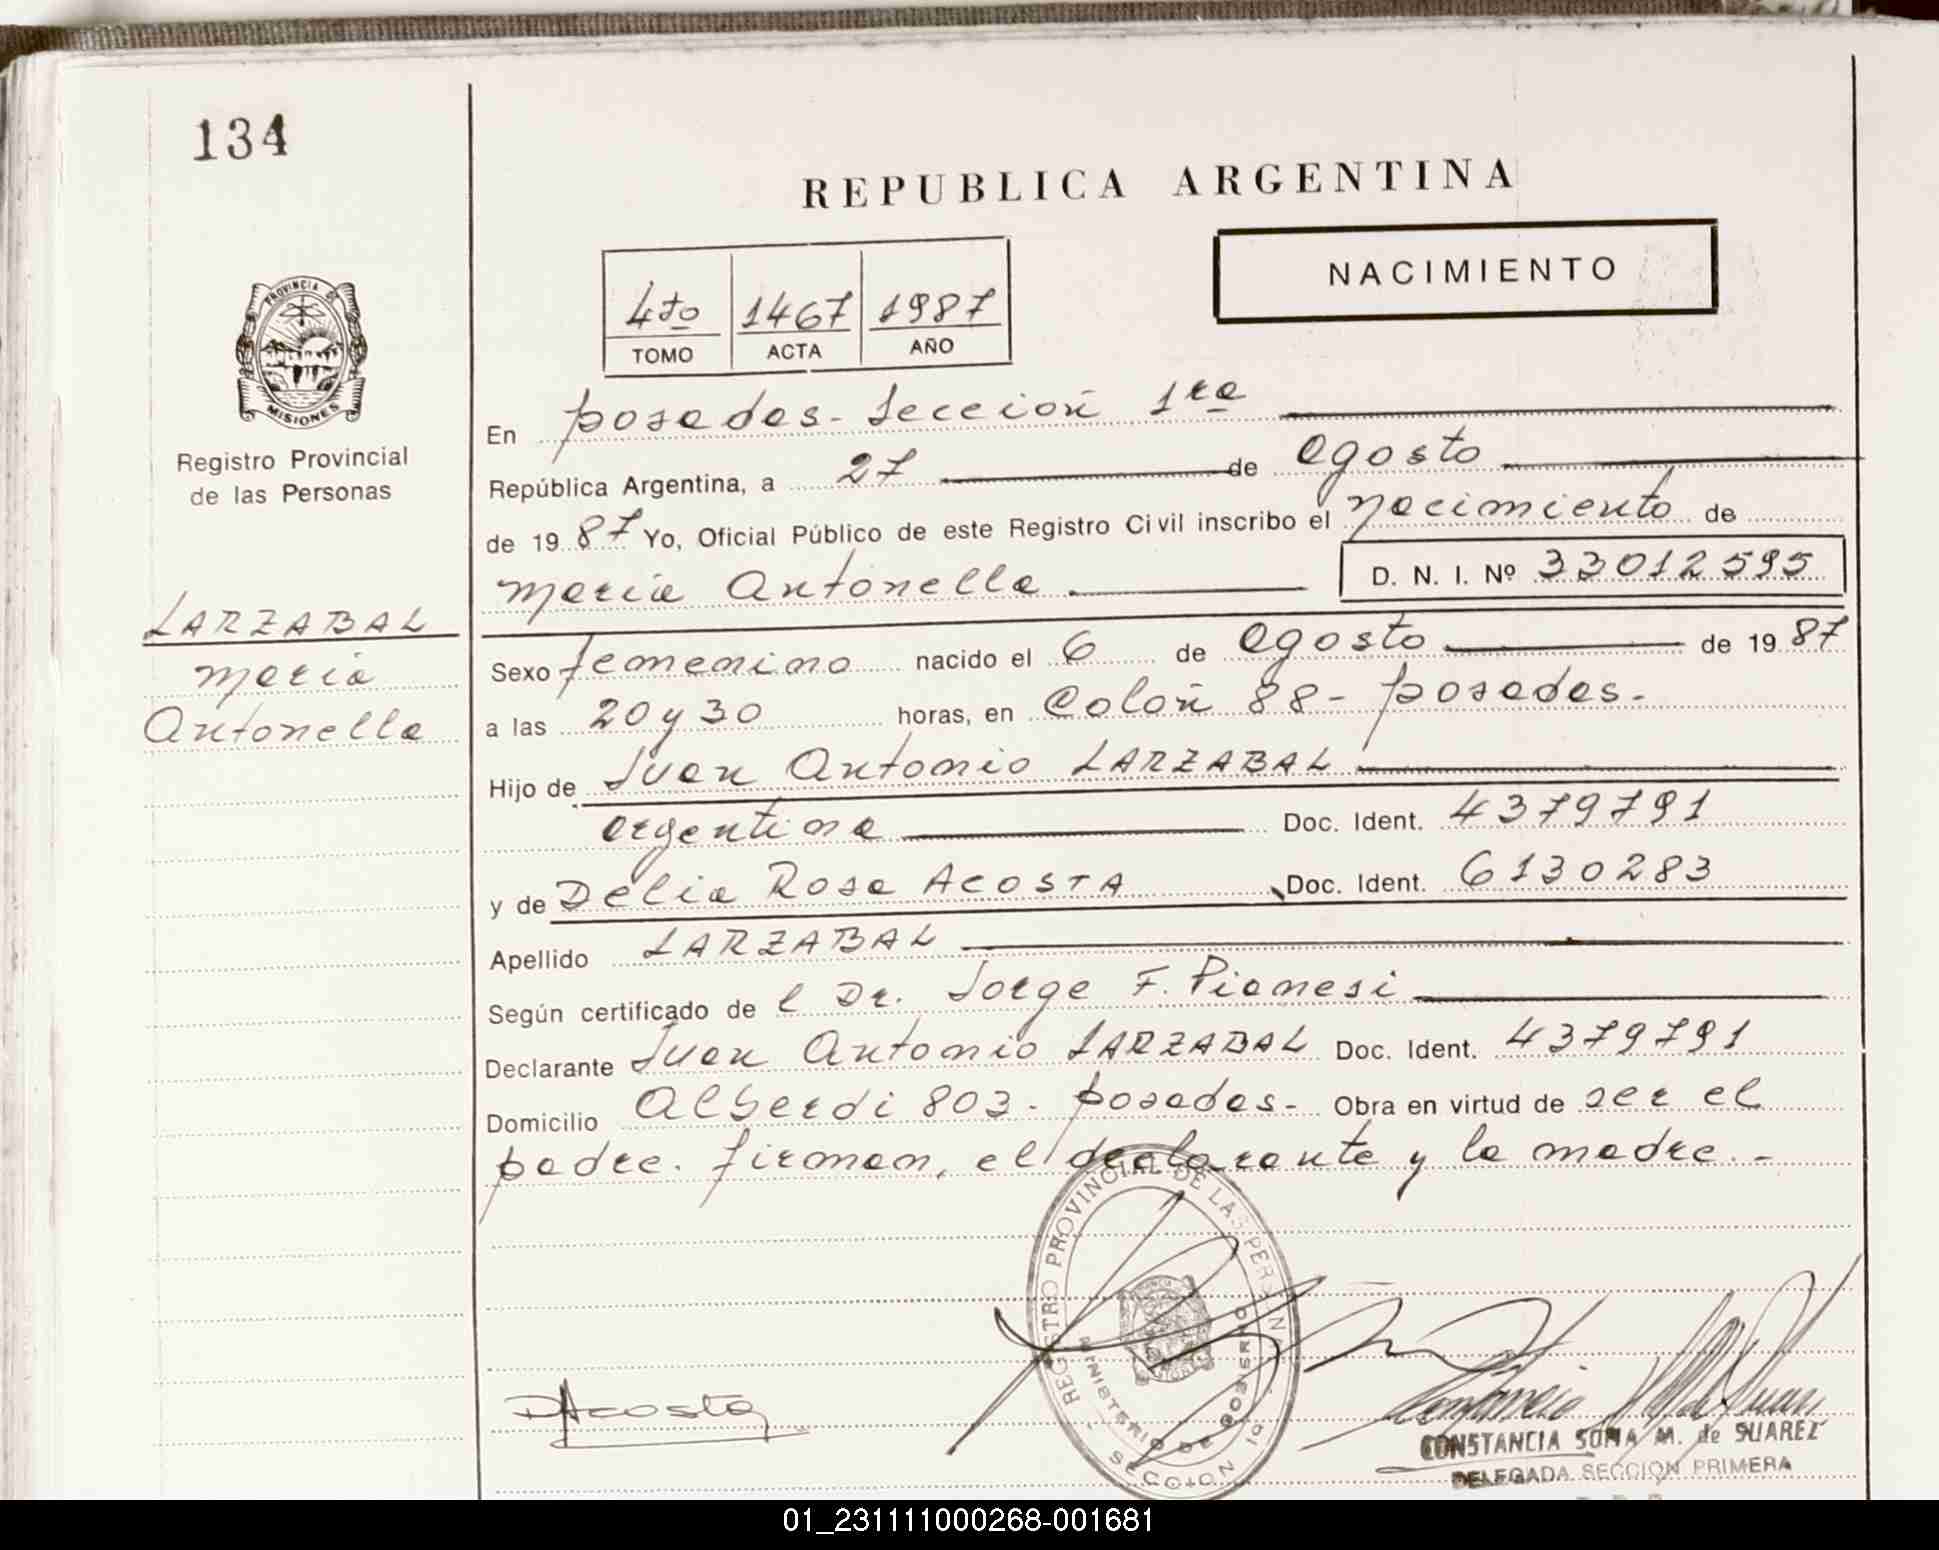 134
REPUBLICA ARGENTINA
NACIMIENTO
4to 1467 1987
TOMO ACTA AÑO
PROVINCIA DE
MISIONES
Registro Provincial
de las Personas
En posadas - Sección 1ra
República Argentina, a 27 de agosto
de 1987 Yo, Oficial Público de este Registro Civil inscribo el nacimiento de
María Antonella D. N. I. Nº 33012595
LARZABAL
María
Antonella
Sexo femenino nacido el 6 de agosto de 1987
a las 20 y 30 horas, en Colón 88 - posadas.
Hijo de Juan Antonio LARZABAL
argentina Doc. Ident. 4379791
y de Delia Rosa ACOSTA Doc. Ident. 6130283
Apellido LARZABAL
Según certificado de l Dr. Jorge F. Pianesi
Declarante Juan Antonio LARZABAL Doc. Ident. 4379791
Domicilio Alberdi 803 - posadas - Obra en virtud de ser el
padre. firman, el declarante y la madre. -
REGISTRO PROVINCIAL DE LAS PERSONAS
MINISTERIO DE GOBIERNO
SECCION 1a
DAcosta
CONSTANCIA SOFIA M. de SUAREZ
DELEGADA SECCION PRIMERA
01_231111000268-001681